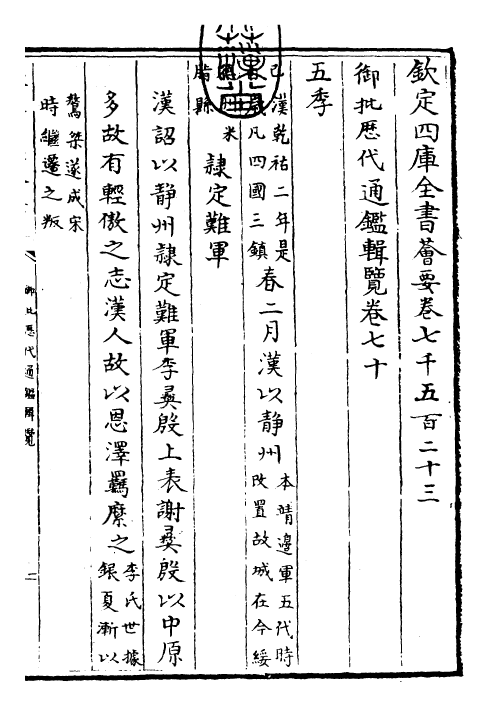 欽定四庫全書薈要卷七千五百二十三
御批歷代通鑑輯覽卷七十
五季
己 漢乾祐二年是
歲凡四國三鎮
春二月漢以靜州
本靖邊軍五代時
改置故城在今綏
州米
脂縣
隷定難軍
漢詔以静州隷定難軍李彛殷上表謝彛殷以中原
多故有輕傲之志漢人故以恩澤羈縻之
李氏世據
銀夏漸以
驁桀遂成宋
時繼遷之叛
御批歷代通鑑輯覽